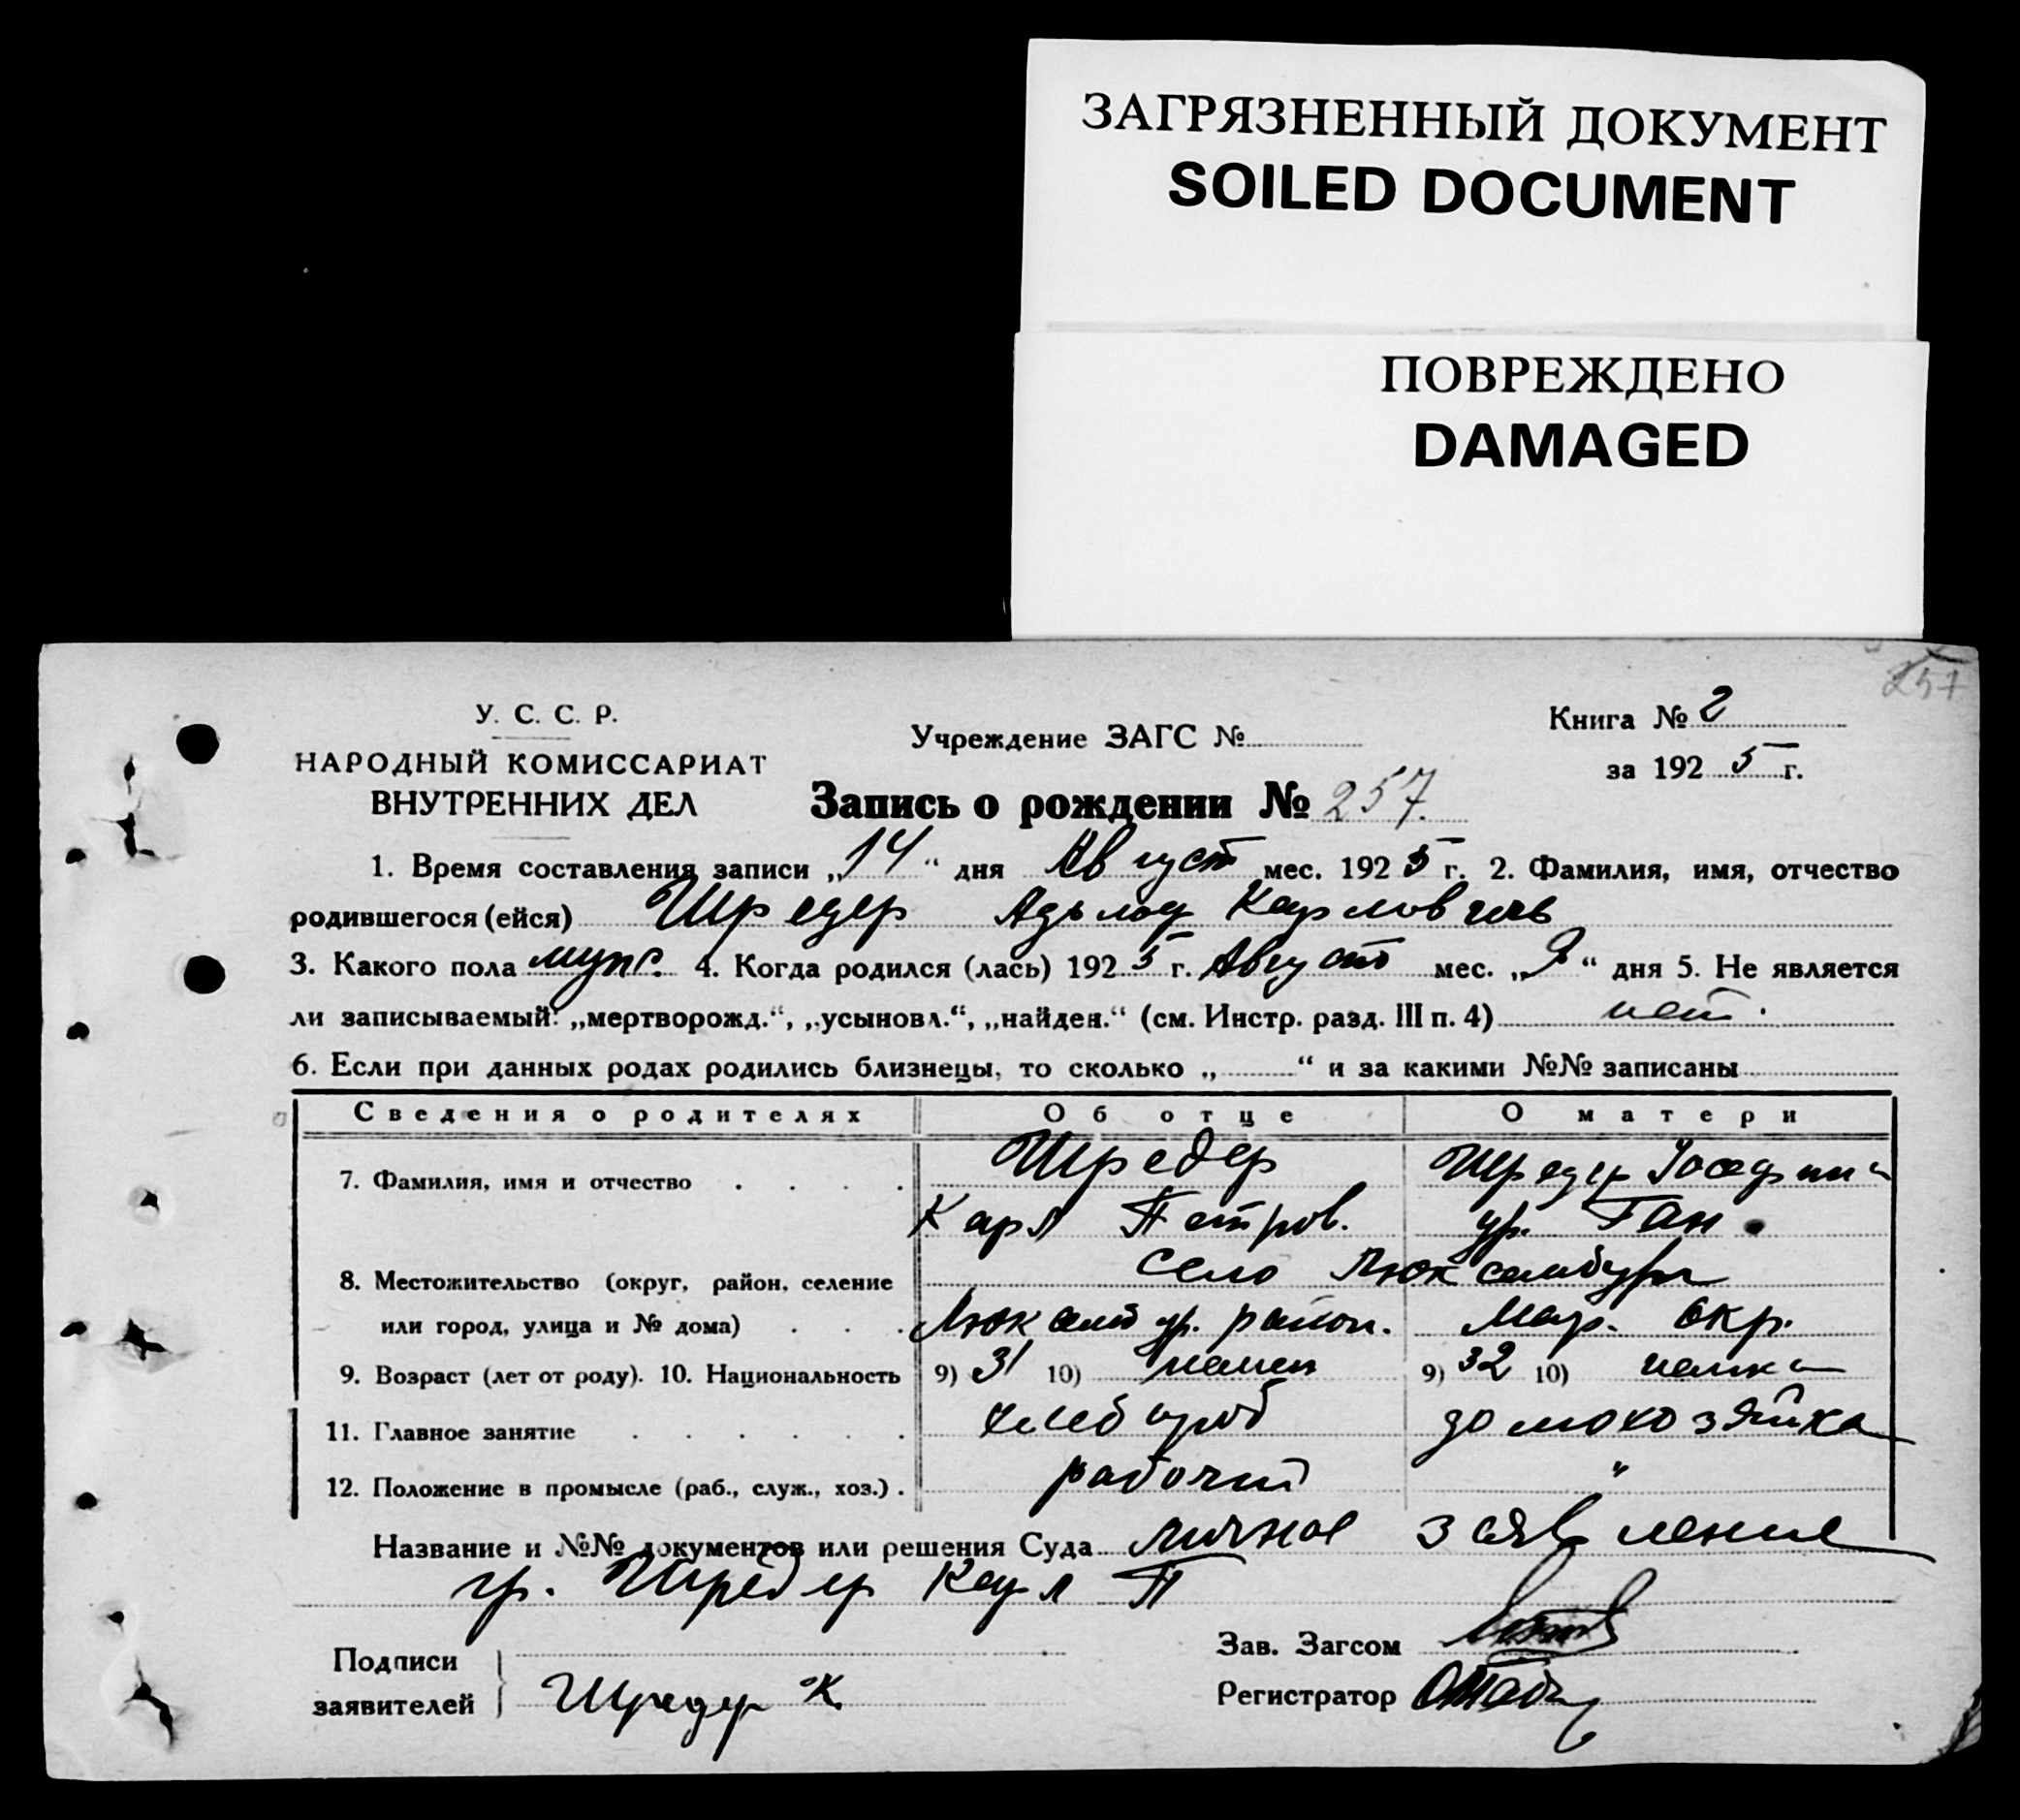 ЗАГРЯЗНЕННЫЙ ДОКУМЕНТ
SOILED DOCUMENT
ПОВРЕЖДЕНО
DAMAGED
257
У. С. С. Р.
НАРОДНЫЙ КОМИССАРИАТ
ВНУТРЕННИХ ДЕЛ
Учреждение ЗАГС №
Книга № 2
за 1925 г.
Запись о рождении № 257.
1. Время составления записи „14“ дня Август мес. 1925 г. 2. Фамилия, имя, отчество
родившегося (ейся) Шредер Адьлоф Карлович
3. Какого пола мужс. 4. Когда родился (лась) 1925 г. Августо мес. „9“ дня 5. Не является
ли записываемый: „мертворожд.“, „усыновл.“, „найден.“ (см. Инстр. разд. III п. 4) нет.
6. Если при данных родах родились близнецы, то сколько „ “ и за какими №№ записаны
Сведения о родителях Об отце О матери
7. Фамилия, имя и отчество Шредер Шредер
Карл Петров. ур. Ган
8. Местожительство (округ, район, селение село Люксембург
или город, улица и № дома) Люксембур. район. Мар. Окр.
9. Возраст (лет от роду). 10. Национальность 9) 31 10) немец 9) 32 10) немка
11. Главное занятие хлебороб домохозяйка
12. Положение в промысле (раб., служ., хоз.) рабочий "
Название и №№ документов или решения Суда личное заявление
гр. Шредер Карл П
Подписи
заявителей Шредер К
Зав. Загсом
Регистратор